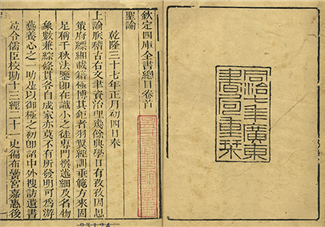 同治七年廣東
書局重栞
欽定四庫全書總目卷首
聖諭
乾隆三十七年正月初四日奉
上諭朕稽古右文聿資治理幾餘典學日有孜孜因思
策府縹緗載籍極博其鉅者羽翼經訓垂範方來固
足稱千秋法鑒即在識小之徒專門撰述細及名物
象數兼綜條貫各自成家亦莫不有所發明可為游
藝養心之一助是以御極之初即詔中外搜訪遺書
並令儒臣校勘十三經二十一史徧布黌宮嘉惠後